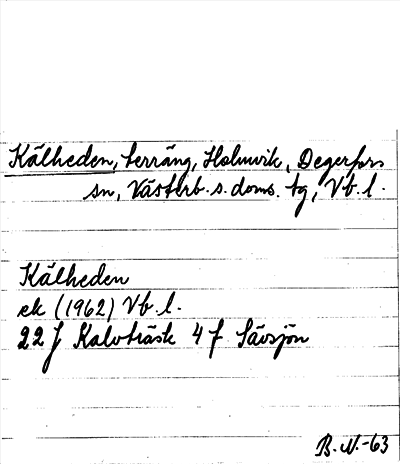 Kälheden, terräng, Holmvik, Degerfors
sn, Västerb. s. doms. tg, Vb. l.
Kälheden
ek (1962) Vb. l.
22 J Kalvträsk 4 f Sävsjön
B. N. -63